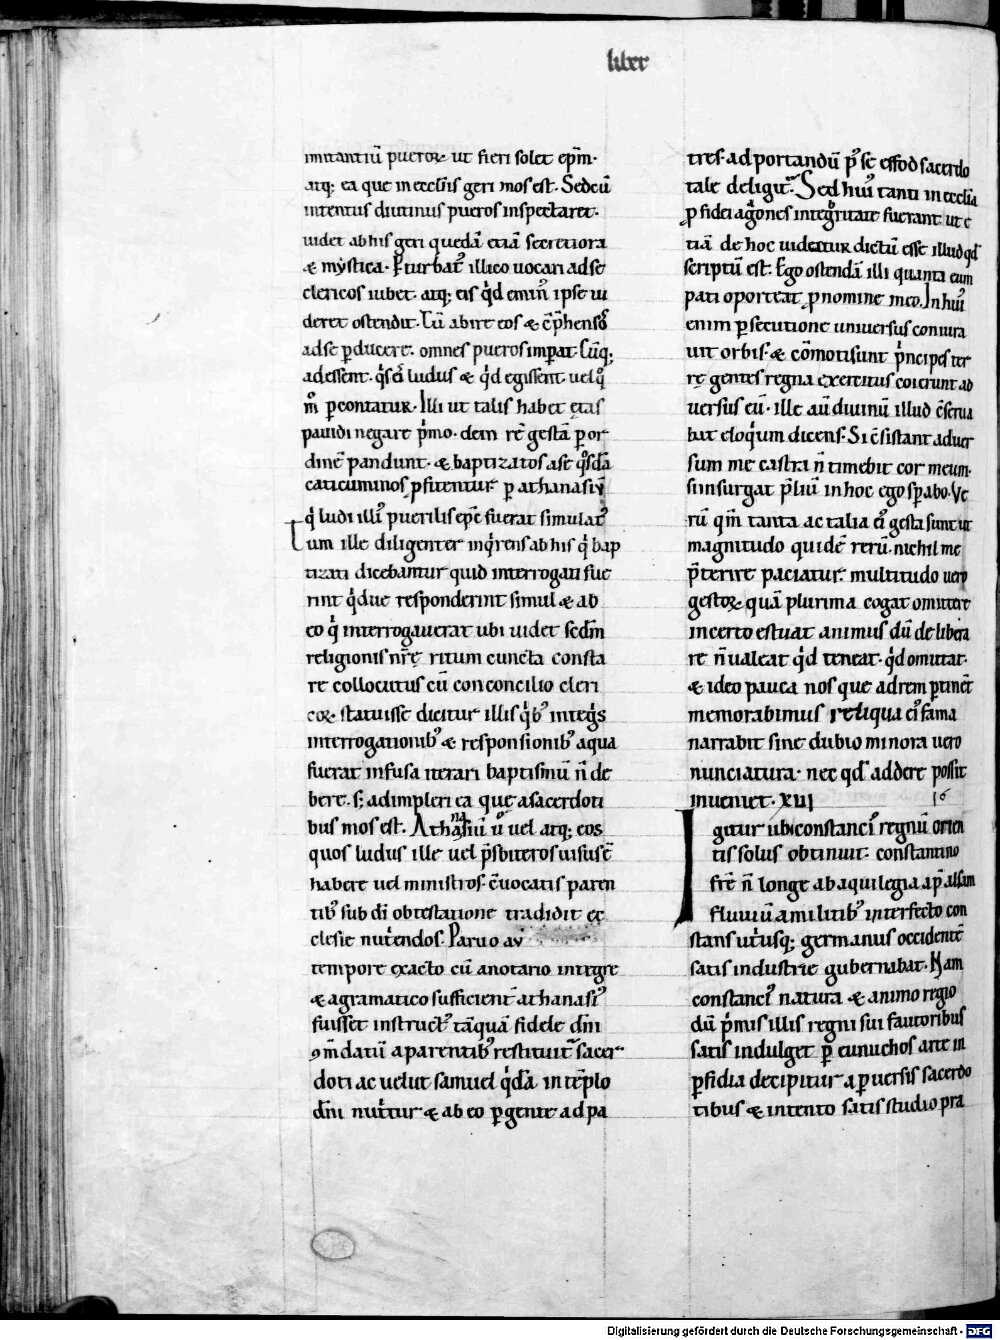 liber
imitantiũ pueroꝝ ut fieri solet ep̃m·
atq; ea que in ecclĩis geri mos est. Sed cũ
intentus diutinus pueros inspectaret·
uidet ab his geri quedã etiã secretiora
& mẏstica· ꝑturbat᷒ illico uocari ad se
clericos iubet· atq; eis qͥd emin̄ ipse ui
deret ostendit. Tũ abire eos & cõp̃hensos
ad se ꝑducere· omnes pueros imperat. Cũq;
adessent· qͥs eĩ ludus & qͥd egissent uel quo
m̊ ꝑcontatur· Illi ut talis habet etas
pauidi negare p̃mo· dein rẽ gestã ꝑ or
dinẽ pandunt· & baptizatos a se quosdã
caticuminos ꝓfitentur· ꝑ athanasiũ
qͥ ludi illi᷒ puerilis ep̃c fuerat simulat᷒
Tum ille diligenter inqͥrens ab his qͥ bap
tizati dicebantur quid interrogati fue
rint qͥdue responderint simul & ab
eo qͥ interrogauerat ubi uidet scd̃m
religionis nr̃ę ritum cuncta consta
re collocutus cũ conconcilio cleri
coꝝ· statuisse dicitur illis qͥb᷒ integͥs
interrogationib᷒ & responsionib᷒ aqua
fuerat infusa iterari baptismũ ñ de
bere· s; adimpleri ea que a sacerdoti
bus mos est. Athanasiũ ů uel atq; eos
quos ludus ille uel p̃sbiteros uisus ẽ
habere uel ministros· cõuocatis paren
tib᷒ sub dĩ obtestatione tradidit ec
clesie nutͥendos· Paruo aũ
tempore exacto cũ a notario integre
& a gramatico sufficient̃ athanasi᷒
fuisset instruct᷒ tãquã fidele dñi
ꝯm̃datũ a parentib᷒ restituit᷑ sacer
doti ac uelut samuel qͥdã in tẽplo
dñi nutͥtur & ab eo ꝑgente ad pa
tres· ad portandũ p᷒ se effod sacerdo
tale deligit᷑. Sed hui᷒ tanti in ecclĩa
ꝓ fidei agones integͥtate fuerant ut e
tiã de hoc uideatur dictũ esse illud qd̃
scriptũ est. Ego ostendã illi quanta eum
pati oporteat ꝓ nomine meo. In hui᷒
enim ꝑsecutione uniuersus coniura
uit orbis· & cõmoti sunt p̃ncipes ter
rę gentes regna exercitus coierunt ad
uersus eũ· ille aũ diuinũ illud cõserua
bat eloqͥum dicens· Si cõsistant aduer
sum me castra ñ timebit cor meum·
si insurgat p̃liũ in hoc ego sperabo. Ve
rũ qm̃ tanta ac talia ei᷒ gesta sunt ut
magnitudo quidẽ rerũ· nichil me
p̃terire paciatur· multitudo uero
gestoꝝ quã plurima cogat omittere
incerto estuat animus dũ delibera
re ñ ualeat qͥd teneat· qͥd omittat·
& ideo pauca nos que ad rem ꝑtinẽt
memorabimus reliqua ei᷒ fama
narrabit sine dubio minora uero
nunciatura· nec qd̃ addere possit
inueniet· XVI 16
Igitur ubi constanci᷒ regnũ orien
tis solus obtinuit· constantino
fr̃e ñ longe ab aquilegia ap̃ alsam
fluuiũ a militib᷒ interfecto con
stans utͥusq; germanus occidentẽ
satis industrie gubernabat· Nam
constanci᷒ natura & animo regio
dũ p̃mis illis regni sui fautoribus
satis indulget ꝑ eunuchos arte in
ꝑfidia decipitur a ꝑuersis sacerdo
tibus & intento satis studio pra
Digitalisierung gefördert durch die Deutsche Forschungsgemeinschaft · DFG